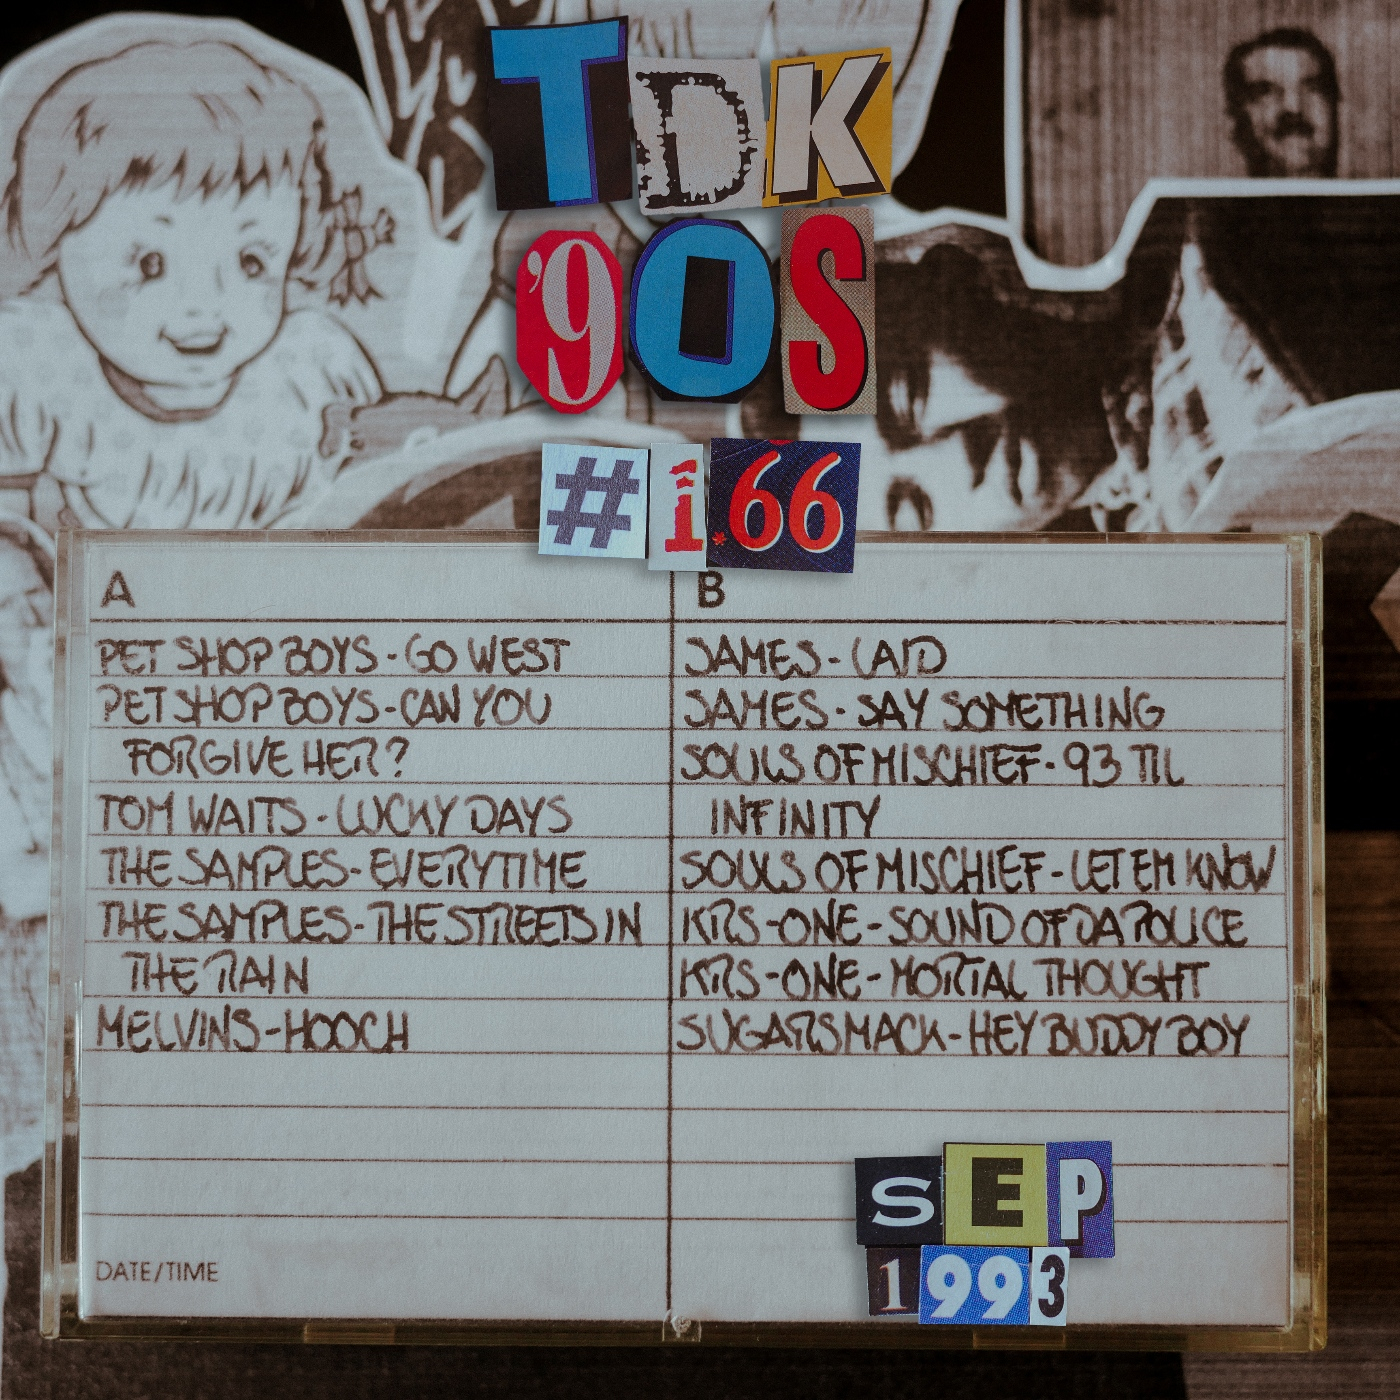 TDK
'90S
#1.66
A
PET SHOP BOYS - GO WEST
PET SHOP BOYS - CAN YOU
FORGIVE HER?
TOM WAITS - LUCKY DAYS
THE SAMPLES - EVERYTIME
THE SAMPLES - THE STREETS IN
THE RAIN
MELVINS - HOOCH
DATE/TIME
B
JAMES - LAID
JAMES - SAY SOMETHING
SOULS OF MISCHIEF - 93 TIL
INFINITY
SOULS OF MISCHIEF - LET EM KNOW
KRS-ONE - SOUND OF DA POLICE
KRS-ONE - MORTAL THOUGHT
SUGARSMACK - HEY BUDDY BOY
SEP
1993